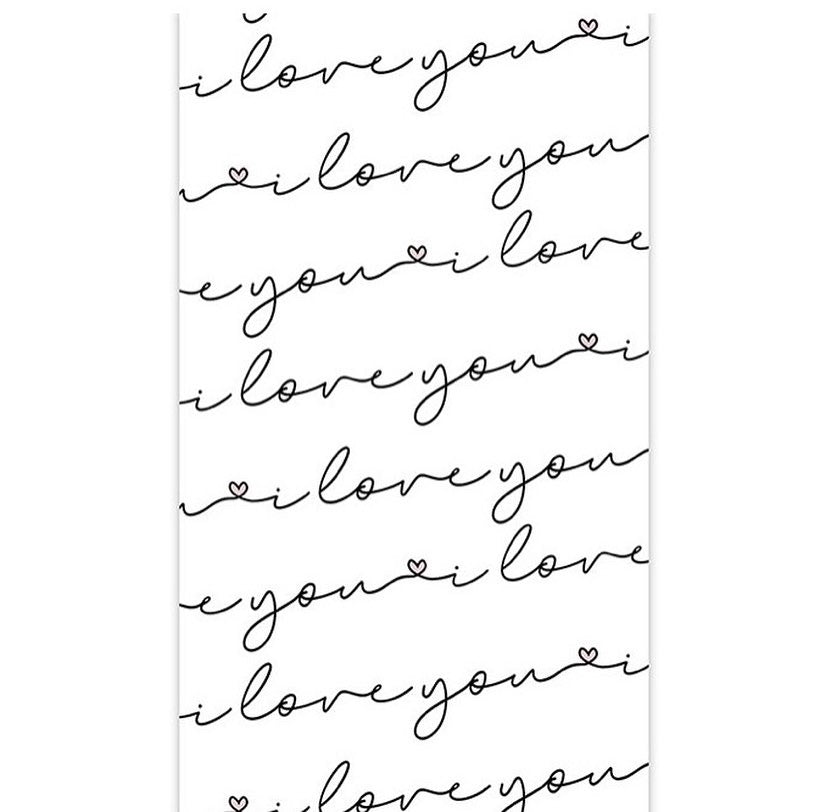 i love you i
i love you
e you i love
i love you i
i love you
e you i love
i love you i
i love you